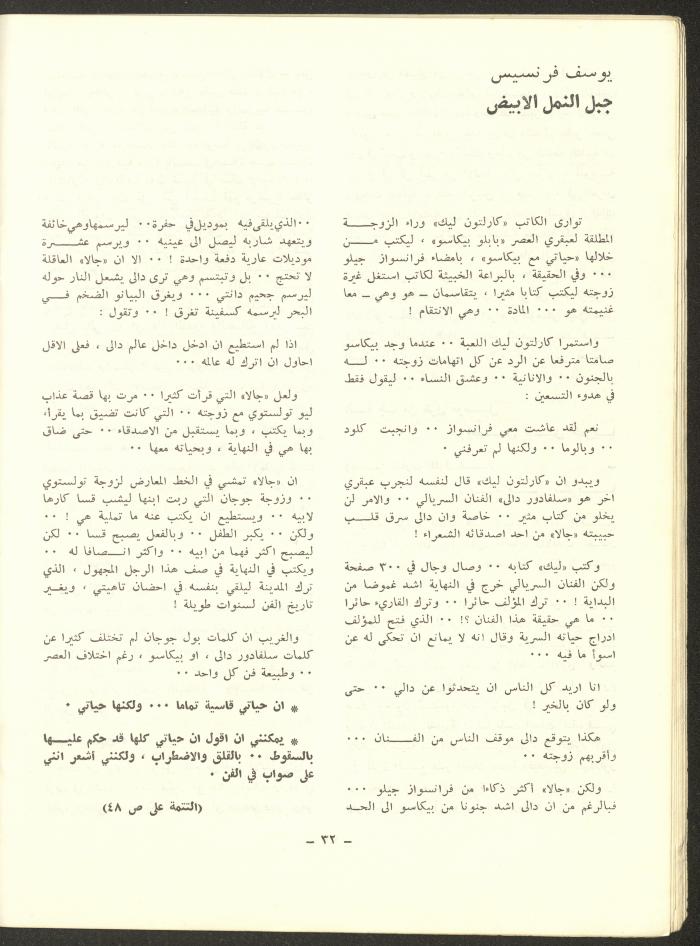 يوسف فرنسيس
جبل النمل الابيض
توارى الكاتب «كارلتون ليك» وراء الزوجـــة
المطلقة لعبقري العصر «بابلو بيكاسو» ، ليكتب مـــن
خلالها «حياتي مع بيكاسو» ، بامضاء فرانسواز جيلو
٠٠٠ وفي الحقيقة ، بالبراعة الخبيثة لكاتب استغل غيرة
زوجته ليكتب كتابا مثيرا ، يتقاسمان ــ هو وهي ــ معا
غنيمته هو ٠٠٠ المادة ٠٠ وهي الانتقام !
واستمرا كارلتون ليك اللعبة ٠٠ عندما وجد بيكاسو
صامتا مترفعا عن الرد عن كل اتهامات زوجته ٠٠ لـــه
بالجنون ٠٠ والانانية ٠٠ وعشق النساء ٠٠ ليقول فقط
في هدوء التسعين :
نعم لقد عاشت معي فرانسواز ٠٠ وانجبت كلود
٠٠ وبالوما ٠٠ ولكنها لم تعرفني ٠
ويبدو ان «كارلتون ليك» قال لنفسه لنجرب عبقري
اخر هو «سلفادور دالى» الفنان السريالي ٠٠ والامر لن
يخلو من كتاب مثير ٠٠ خاصة وان دالى سرق قلـــب
حبيبته «جالا» من احد اصدقائه الشعراء !
وكتب «ليك» كتابه ٠٠ وصال وجال في ٣٠٠ صفحة
ولكن الفنان السريالي خرج في النهاية اشد غموضا من
البداية ! ٠٠ ترك المؤلف حائرا ٠٠ وترك القاريء حائرا
٠٠ ما هي حقيقة هذا الفنان ؟! ٠٠ الذي فتح للمؤلف
ادراج حياته السرية وقال انه لا يمانع ان تحكى له عن
اسوأ ما فيه ٠٠٠
انا اريد كل الناس ان يتحدثوا عن دالي ٠٠ حتى
ولو كان بالخير !
هكذا يتوقع دالى موقف الناس من الفـــنان ٠٠٠
وأقربهم زوجته ٠٠
ولكن «جالا» أكثر ذكاءا من فرانسواز جيلو ٠٠٠
فبالرغم من ان دالى اشد جنونا من بيكاسو الى الحـد
٠٠الذي يلقى فيه بموديل في حفرة٠٠ ليرسمها وهي خائفة
ويتعهد شاربه ليصل الى عينيه ٠٠ ويرسم عشـــرة
موديلات عارية دفعة واحدة ! ٠٠ الا ان «جالا» العاقلة
لا تحتج ٠٠ بل وتبتسم وهي ترى دالى يشعل النار حوله
ليرسم جحيم دانتي ٠٠٠ ويغرق البيانو الضخم فـــي
البحر ليرسمه كسفينة تغرق ! ٠٠ وتقول :
اذا لم استطيع ان ادخل داخل عالم دالى ، فعلى الاقل
احاول ان اترك له عالمه ٠٠٠
ولعل «جالا» التي قرأت كثيرا ٠٠ مرت بها قصة عذاب
ليو تولستوي مع زوجته ٠٠ التي كانت تضيق بما يقرأ،
وبما يكتب ، وبما يستقبل من الاصدقاء ٠٠ حتى ضاق
بها هي في النهاية ، وبحياته معها ٠٠
ان «جالا» تمشي في الخط المعارض لزوجة تولستوي
٠٠ وزوجة جوجان التي ربت ابنها ليشب قسا كارها
لابيه ٠٠ ويستطيع ان يكتب عنه ما تملية هي ! ٠٠
ولكن ٠٠ يكبر الطفل ٠٠ وبالفعل يصبح قسا ٠٠ لكن
ليصبح اكثر فهما من ابيه ٠٠ واكثر انـــصافا له ٠٠
ويكتب في النهاية في صف هذا الرجل المجهول ، الذي
ترك المدينة ليلقي بنفسه في احضان تاهيتي ، ويغـير
تاريخ الفن لسنوات طويلة !
والغريب ان كلمات بول جوجان لم تختلف كثيرا عن
كلمات سلفادور دالى ، او بيكاسو ، رغم اختلاف العصر
٠٠ وطبيعة فن كل واحد ٠٠
* ان حياتي قاسية تماما ٠٠٠ ولكنها حياتي ٠
* يمكنني ان اقول ان حياتي كلها قد حكم عليـــها
بالسقوط ٠٠ بالقلق والاضطراب ، ولكنني أشعر انني
على صواب في الفن ٠
(التتمة على ص ٤٨)
– ٣٢ –